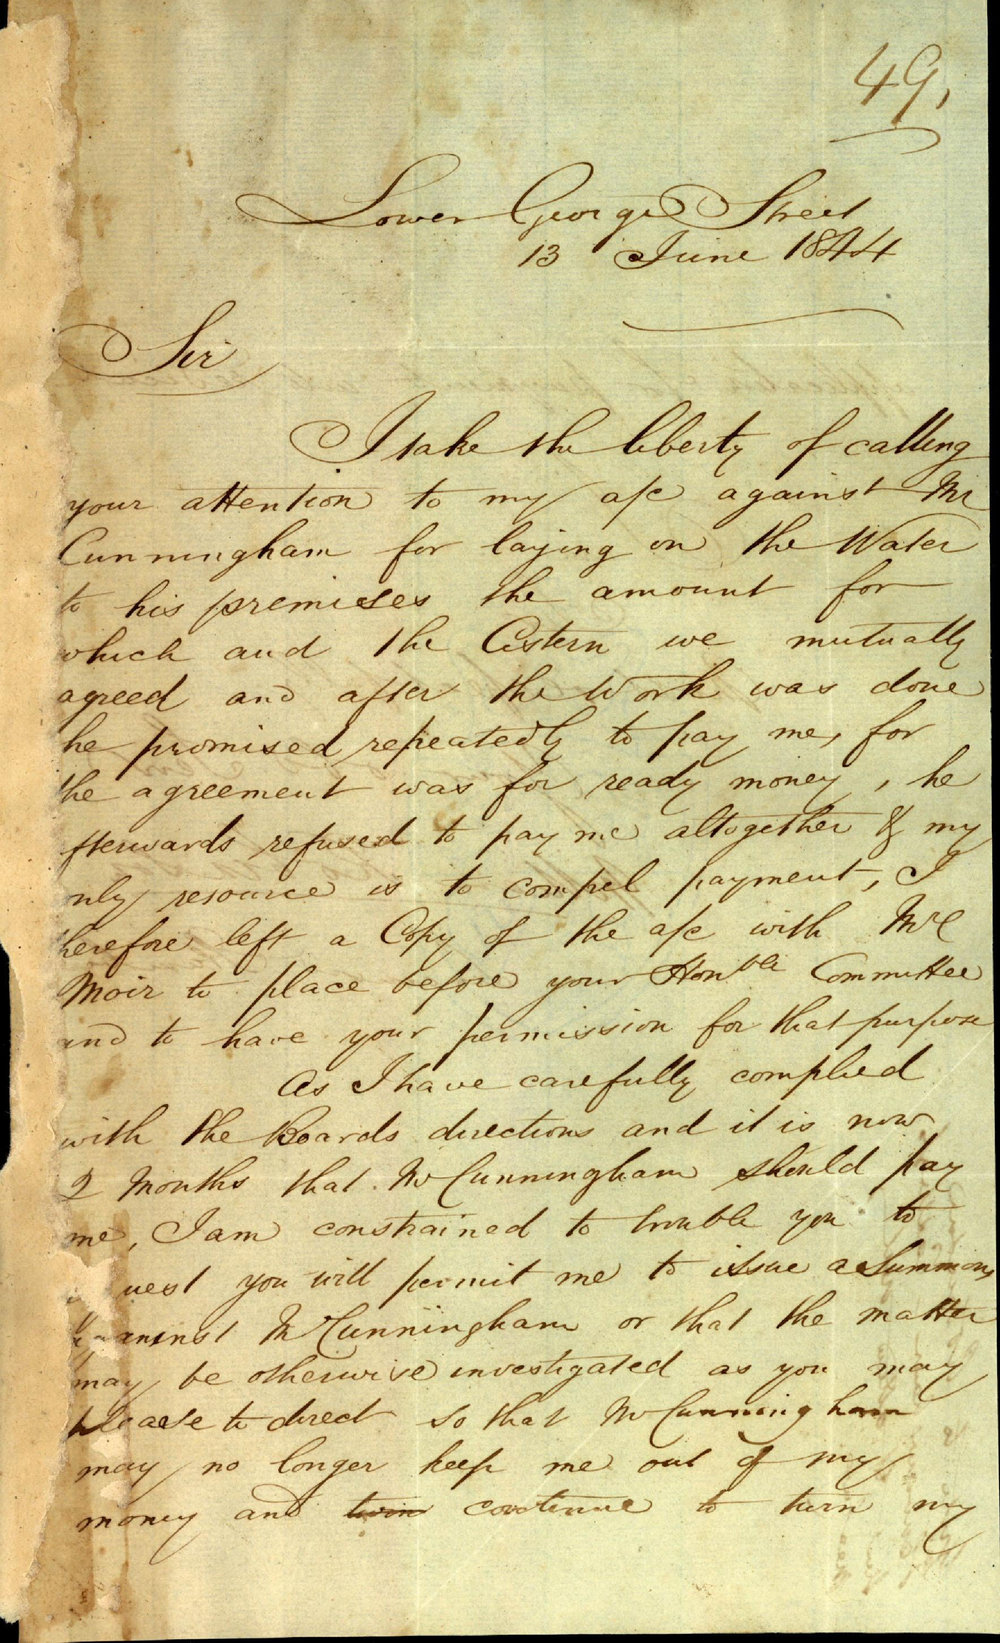 49,
Lower George Street
13 June 1844
Sir
I take the liberty of calling
your attention to my a/c against Mr
Cunningham for laying on the Water
to his premises the amount for
which and the Cistern we mutually
agreed and after the Work was done
he promised repeatedly to pay me, for
the agreement was for ready money, he
fterwards refused to pay me altogether & my
only resource is to compel payment, I
herefore left a Copy of the a/c with Mr
Moir to place before your Honble Committee
and to have your permission for that purpose
As I have carefully complied
with the Boards directions and it is now
2 Months that Mr Cunningham should pay
me, I am constrained to trouble you to
uest you will permit me to issue a Summons
against Mr Cunningham or that the matter
may be otherwise investigated as you may
please to direct so that Mr Cunningham
may no longer keep me out of my
money and continue to turn my